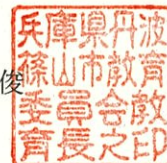 俊
兵庫県丹波
篠山市教育
委員会教
育長之印